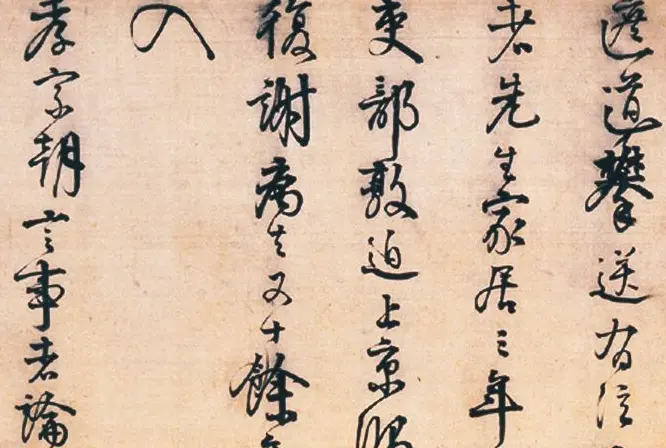 遮道攀送有泣
者先生家居三年
吏部敦迫上京
復謝病去又十餘
入
孝宗朝言事者論